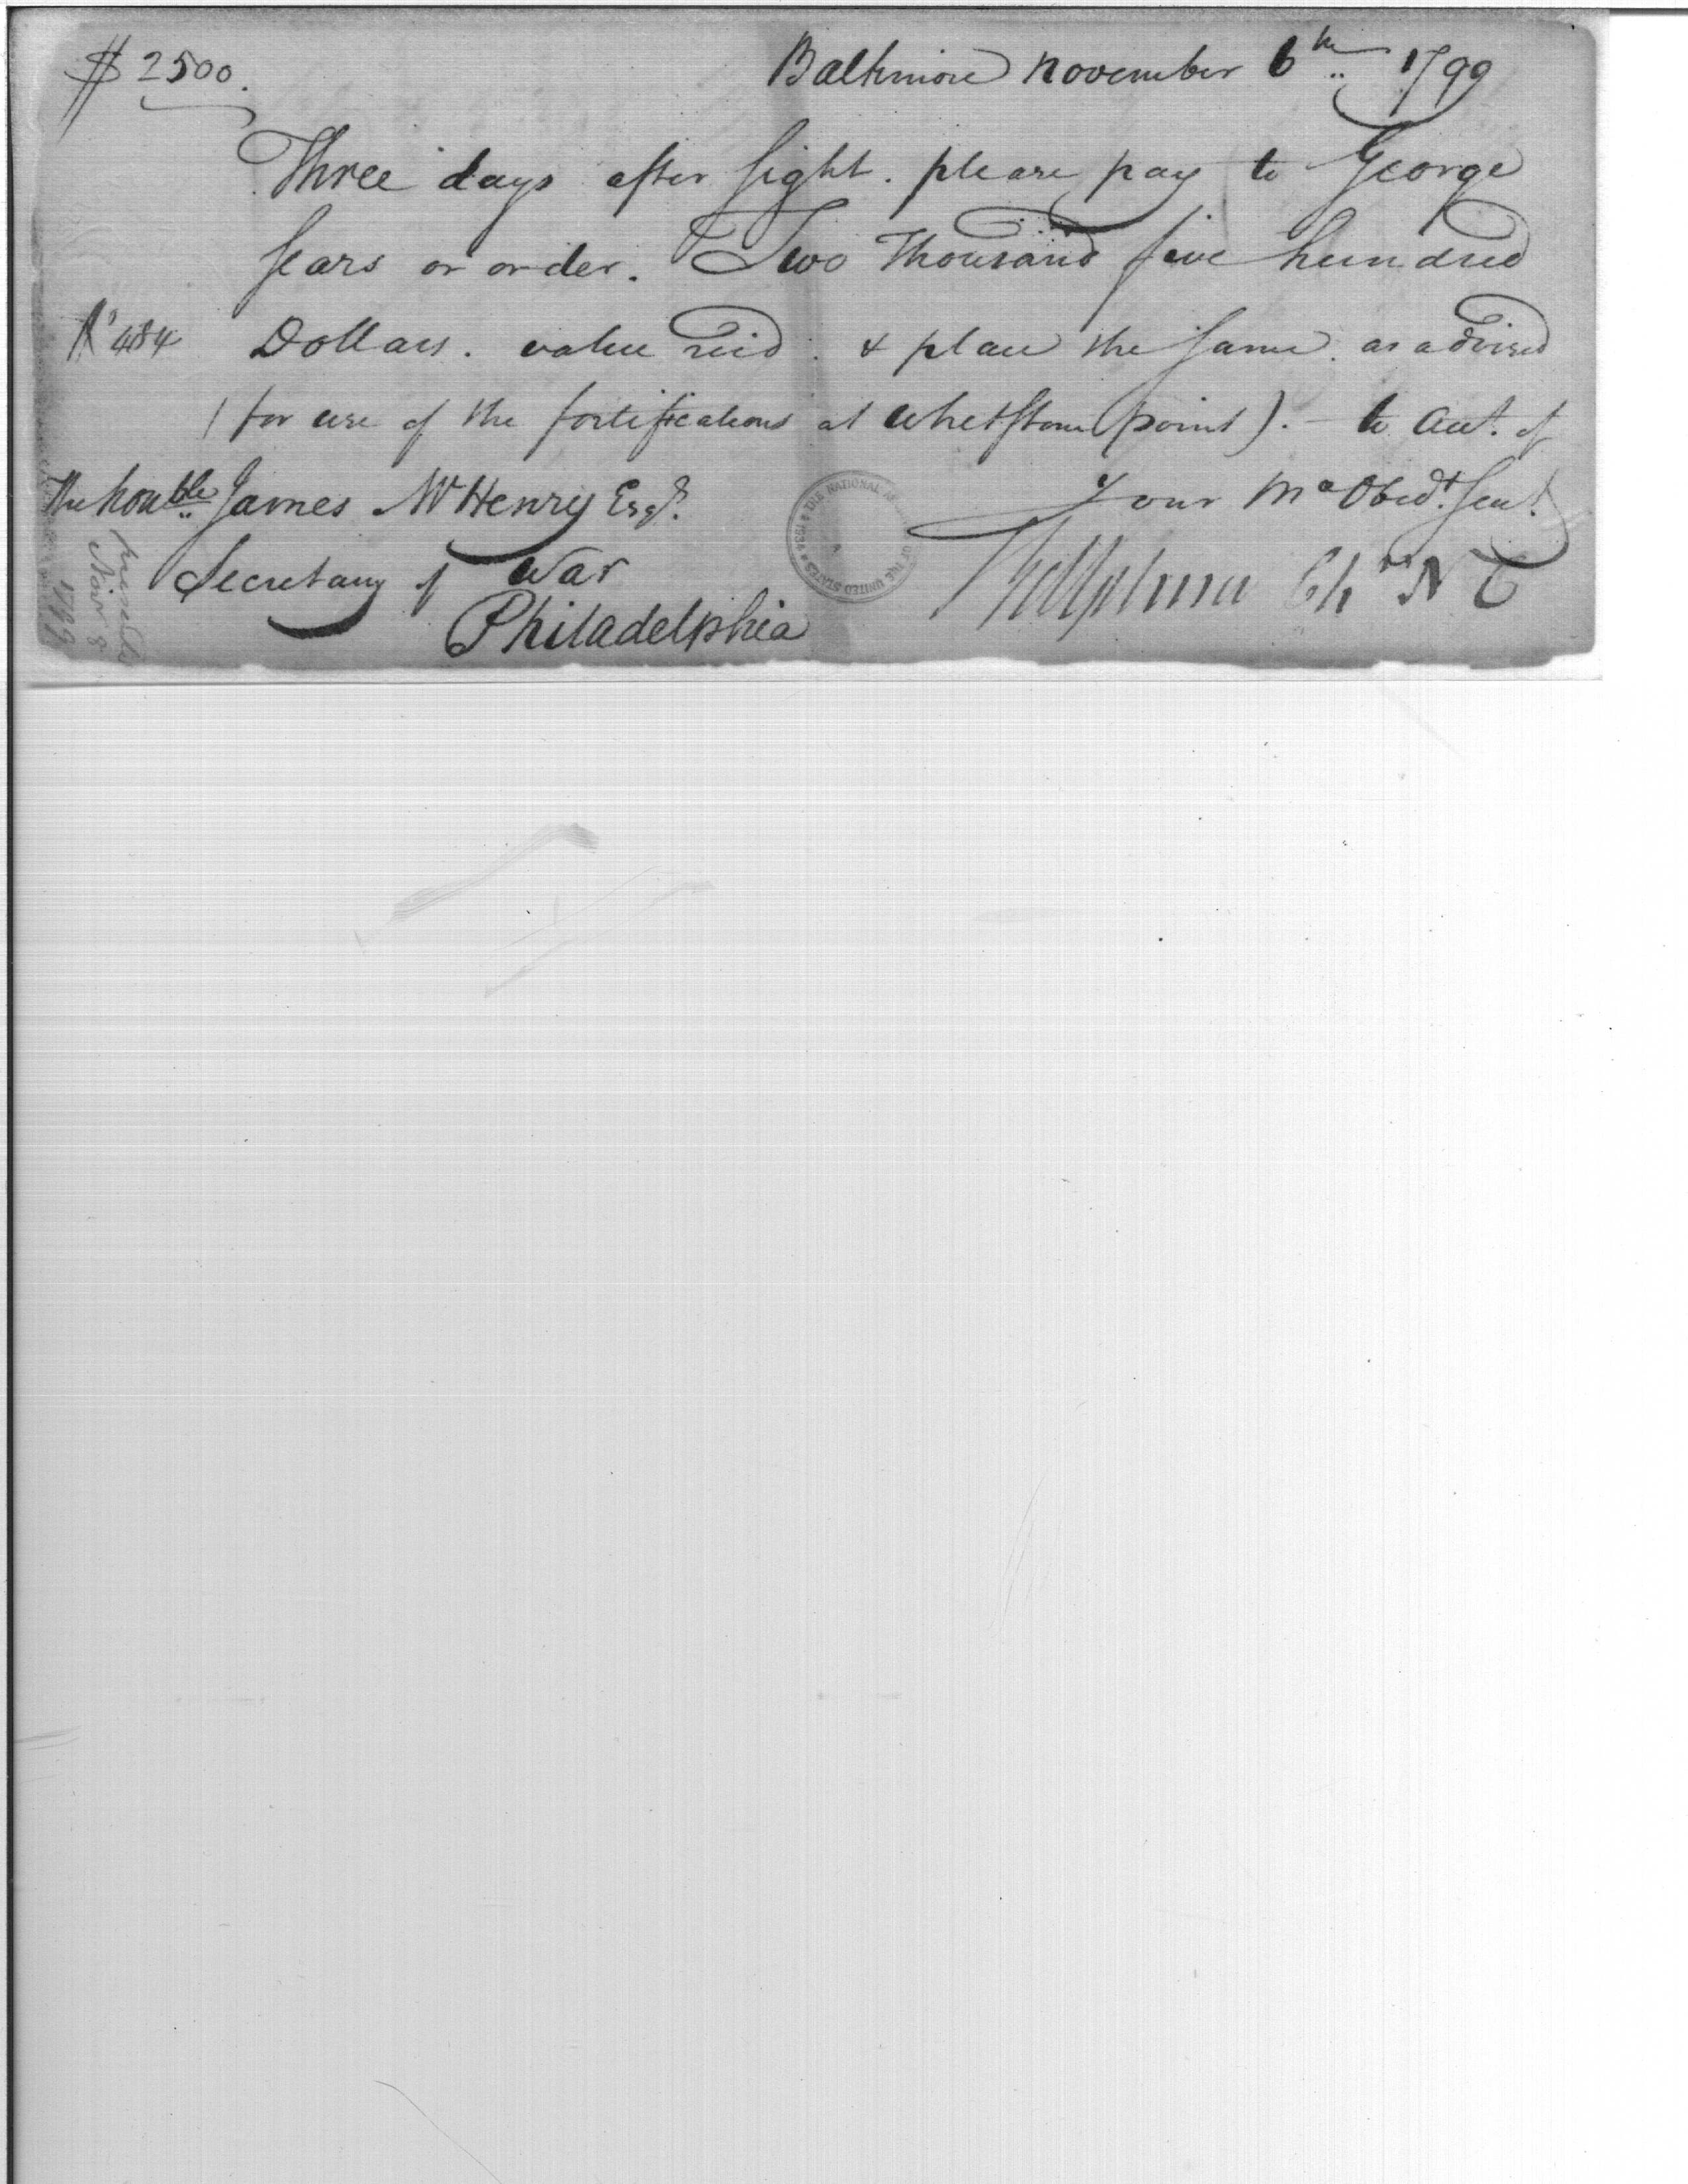 $ 2500.
Baltimore november 6th 1799
Three days after sight. please pay to George
Sears or order. Two Thousand five hundred
No 484 Dollars. value recd. & place the same. as advised
(for use of the fortifications at whetstone point). - to acct. of
The honble James McHenry Esqr. your Mo Obedt. Sert.
Secretary of War
Philadelphia
Novr 8
1799
THE NATIONAL OF THE UNITED STATES 1934